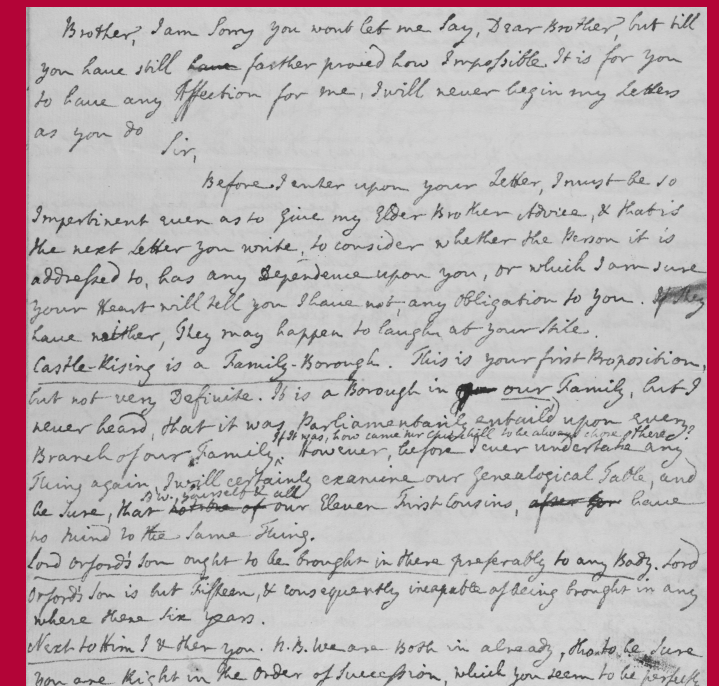 Brother, I am Sorry you wont let me Say, Dear Brother, but till
you have still have farther proved how Impossible It is for you
to have any Affection for me, I will never begin my Letters
as you do
Sir,
Before I enter upon your Letter, I must be so
Impertinent even as to give my Elder Brother Advice, & that is
the next Letter you write, to consider whether the Person it is
addressed to, has any Dependence upon you, or which I am sure
your Heart will tell you I have not, any obligation to you. If they
have neither, They may happen to laugh at your Stile.
Castle-Rising is a Family-Borough. This is your first Proposition,
but not very Definite. It is a Borough in our Family, but I
never heard, that it was Parliamentarily entail'd upon every
If It was, how came Mr Churchill to be always chose there?
Branch of our Family. However, before I ever undertake any
Thing again, I will certainly examine our Genealogical Table, and
yourself & all
be Sure, that not one of our Eleven First Cousins, have
no mind to the Same Thing.
Lord Orford's Son ought to be brought in there preferably to any Body. Lord
Orford's Son is but Fifteen, & consequently incapable of being brought in any
where these Six years.
Next to Him I & then you. N.B. We are Both in already, tho to be Sure
you are Right in the Order of Succession, which you seem to be perfectly